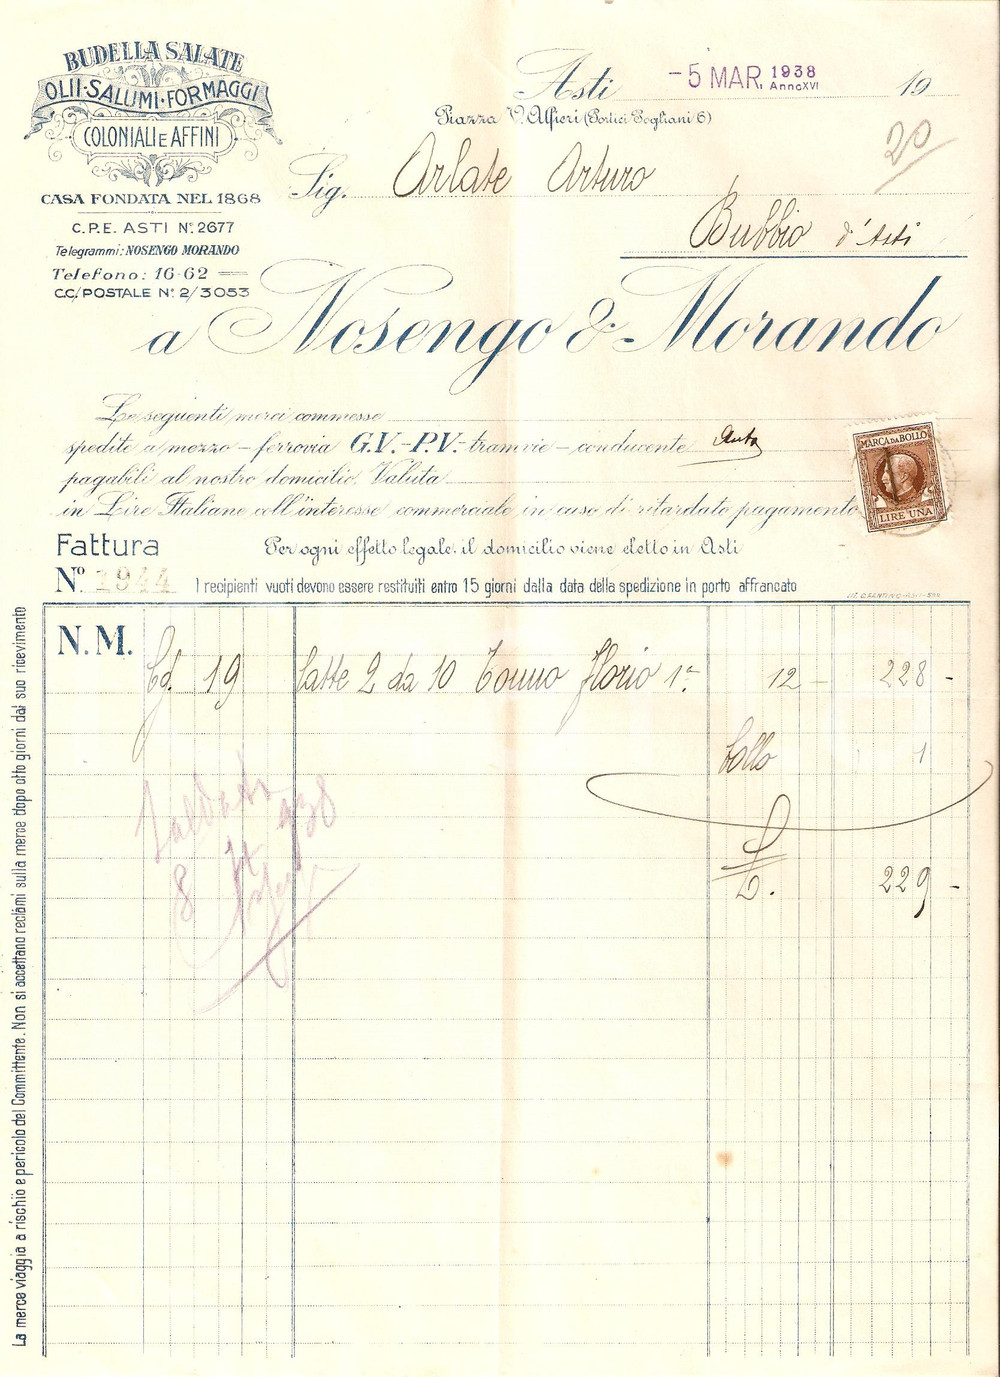 BUDELLA SALATE
OLII·SALUMI·FORMAGGI
COLONIALI E AFFINI
CASA FONDATA NEL 1868
C.P.E. ASTI N.º 2677
Telegrammi: NOSENGO MORANDO
Telefono: 16-62
C.C./POSTALE N.º 2/3053
Asti -5 MAR. 1938 AnnoXVI 19
Piazza V. Alfieri (Portici Pogliani 6)
20
Sig. Arlate Arturo
Bubbio d'Asti
a Nosengo & Morando
Le seguenti merci commesse
spedite a mezzo - ferrovia G.V.-P.V.- tramvie - conducente Auto
pagabili al nostro domicilio. Valuta
in Lire Italiane coll'interesse commerciale in caso di ritardato pagamento
MARCA DA BOLLO
LIRE UNA
Fattura Per ogni effetto legale il domicilio viene eletto in Asti
Nº 1944 I recipienti vuoti devono essere restituiti entro 15 giorni dalla data della spedizione in porto affrancato
N.M.
Cg. 19 latte 2 da 10 Tonno Florio 1ª 12 - 228 -
bollo 1
L. 229 -
Saldata
8 938
La merce viaggia a rischio e pericolo del Committente. Non si accettano reclami sulla merce dopo otto giorni dal suo ricevimento